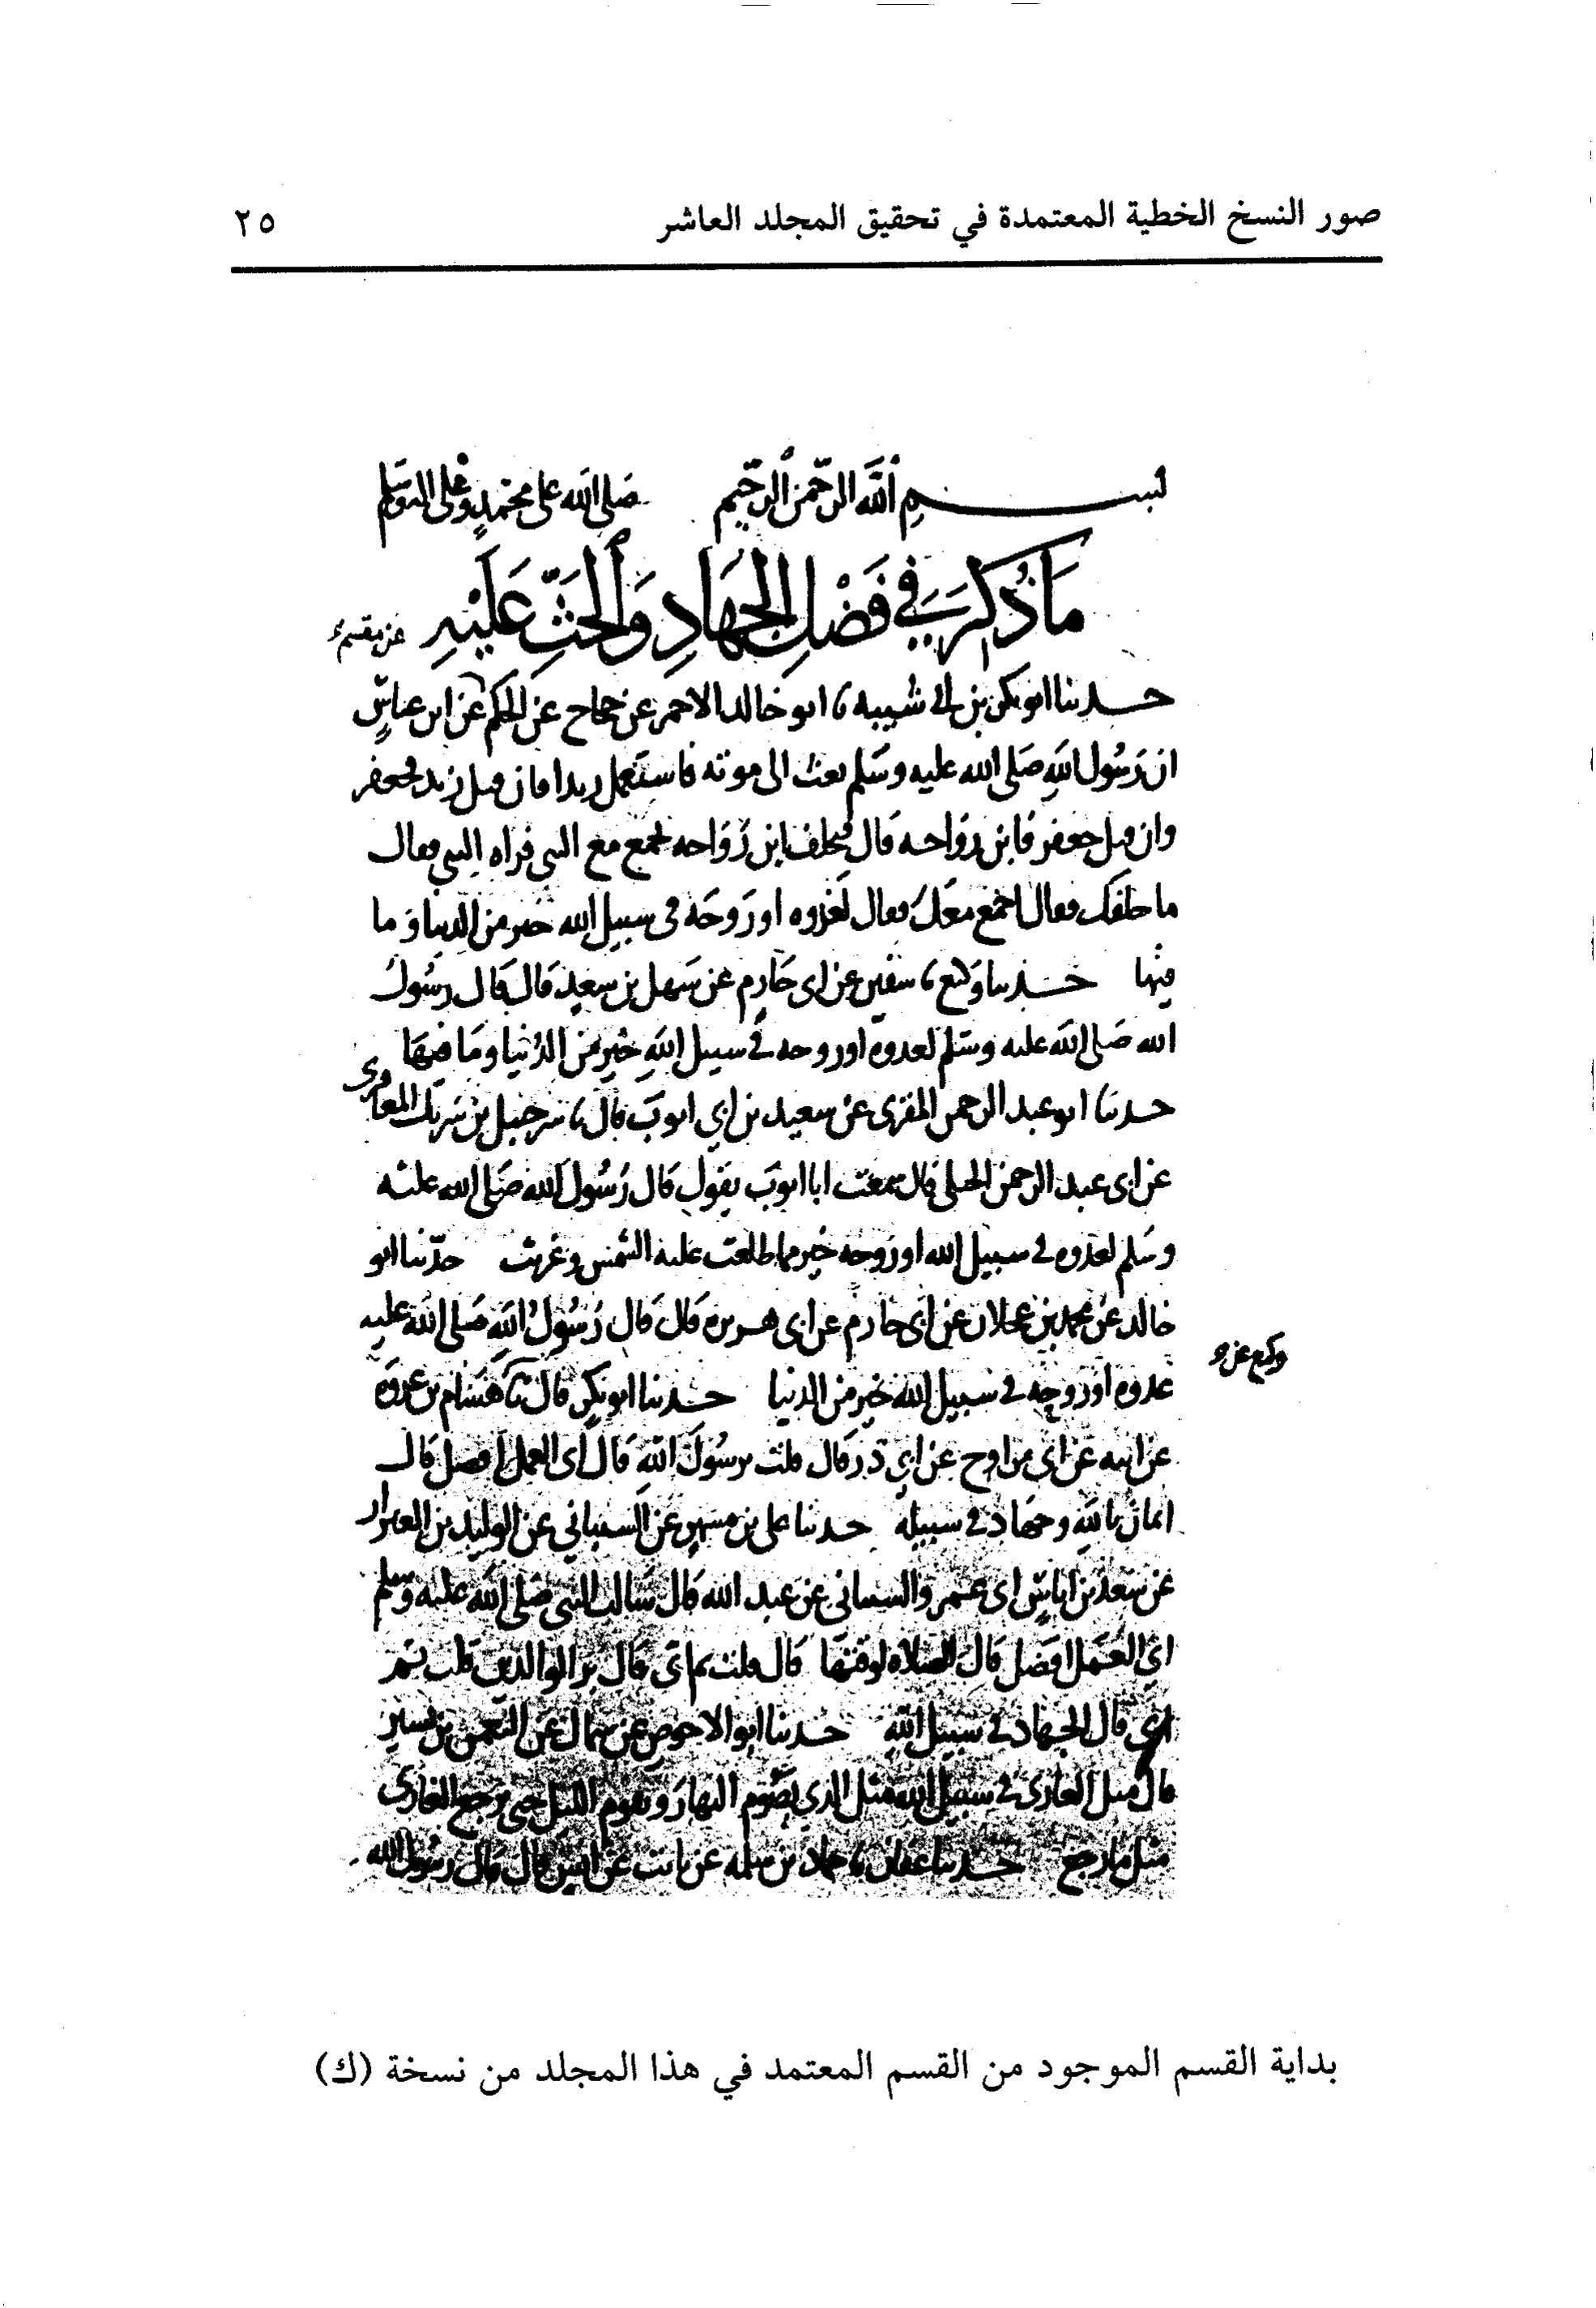 صور النسخ الخطية المعتمدة في تحقيق المجلد العاشر ٢٥
بسم الله الرحمن الرحيم صلى الله على محمد وعلى اله وسلم
ما ذكر في فضل الجهاد والحث عليه
عن مقسم
حدثنا ابو بكر بن ابي شيبة نا ابو خالد الاحمر عن حجاج عن الحكم عن ابن عباس
ان رسول الله صلى الله عليه وسلم بعث الى موته فاستعمل زيدا فان قتل زيد فجعفر
وان قتل جعفر فابن رواحه قال فتخلف ابن رواحه فجمع مع النبي فراه النبي فقال
ما خلفك فقال اجمع معك فقال لغدوه او روحه في سبيل الله خير من الدنيا وما
فيها حدثنا وكيع نا سفين عن ابي حازم عن سهل بن سعد قال قال رسول
الله صلى الله عليه وسلم لغدوه او روحه في سبيل الله خير من الدنيا وما فيها
حدثنا ابو عبد الرحمن المقرى عن سعيد بن ابي ايوب قال نا شرحبيل بن شريك المعافرى
عن ابي عبد الرحمن الحبلى قال سمعت ابا ايوب يقول قال رسول الله صلى الله عليه
وسلم لغدوه في سبيل الله او روحه خير مما طلعت عليه الشمس وغربت حدثنا ابو
خالد عن محمد بن عجلان عن ابي حازم عن ابي هريره قال قال رسول الله صلى الله عليه
غدوه او روحه في سبيل الله خير من الدنيا حدثنا ابو بكر قال نا هشام بن عروه
وكيع عن
عن ابيه عن ابي مراوح عن ابي ذر قال قلت يرسول الله قال اى العمل افضل قال
ايمان بالله وجهاد في سبيله حدثنا علي بن مسهر عن الشيباني عن الوليد بن العيزار
عن سعد بن اياس ابي عمرو الشيباني عن عبد الله قال سالت النبي صلى الله عليه وسلم
اي العمل افضل قال الصلاه لوقتها قال قلت ثم اى قال بر الوالدين قلت ثم
اي قال الجهاد في سبيل الله حدثنا ابو الاحوص عن سماك عن النعمن بن بشير
قال مثل الغازى في سبيل الله مثل الذي يصوم النهار ويقوم الليل حتى يرجع الغازى
حدثنا عفان نا حماد بن سلمه عن ثابت عن انس قال قال رسول الله
بداية القسم الموجود من القسم المعتمد في هذا المجلد من نسخة (ك)